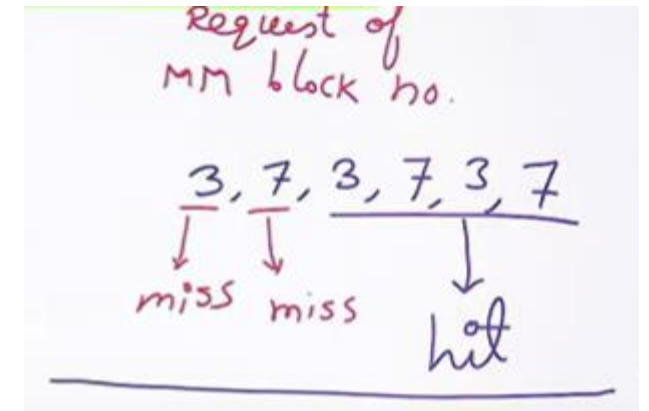 Request of
MM block no.
3, 7, 3, 7, 3, 7
miss miss
hit